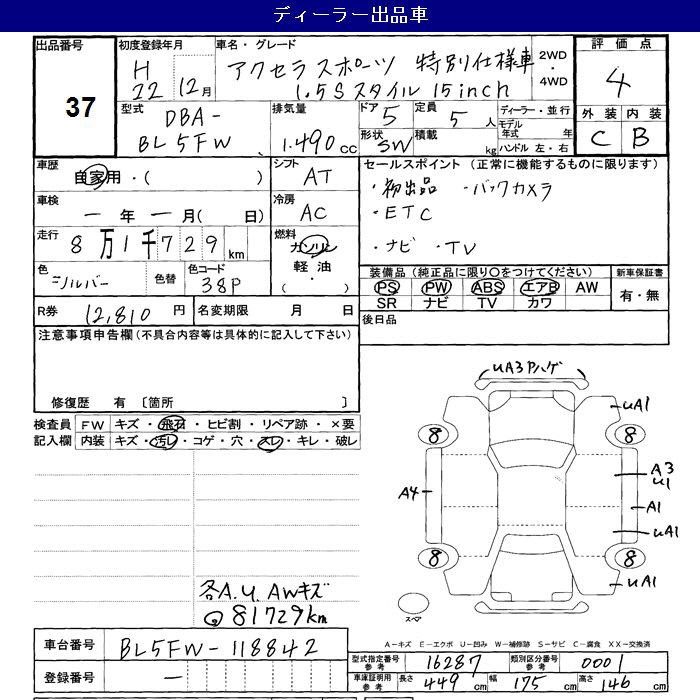 ディーラー出品車
出品番号 37
初度登録年月 H 22年 12月
車名・グレード アクセラスポーツ 特別仕様車
1.5Sスタイル 15inch
2WD・4WD
評価点 4
外装 内装
C B
型式 DBA-
BL5FW
排気量 1.490cc
ドア 5
定員 5人
形状 SW
積載 kg
ディーラー・並行
モデル年式 年
ハンドル 左・右
車歴 自家用・( )
シフト AT
車検 ー年ー月( 日)
冷房 AC
走行 8万1千729km
燃料 ガソリン
軽油
( ・ )
色 シルバー 色替
色コード 38P
R券 12,810円
名変期限 月 日
セールスポイント(正常に機能するものに限ります)
・初出品 ・バックカメラ
・ETC
・ナビ ・TV
装備品(純正品に限り○をつけてください)
PS PW ABS エアB AW
SR ナビ TV カワ
新車保証書
有・無
後日品
注意事項申告欄(不具合内容等は具体的に記入して下さい)
修復歴 有 〔箇所 〕
検査員記入欄
FW キズ・飛石・ヒビ割・リペア跡・×要
内装 キズ・汚レ・コゲ・穴・スレ・キレ・破レ
UA3 Pハゲ
UA1
8 8
A3
U1
A4
A1
UA1
8 8
UA1
スペア
各A.U.AWキズ
81729km
A-キズ E-エクボ U-凹み W-補修跡 S-サビ C-腐食 XX-交換済
車台番号 BL5FW-118842
登録番号 ー
型式指定番号 参考 16287
類別区分番号 参考 0001
車庫証明用 参考 長さ 449cm 幅 175cm 高さ 146cm